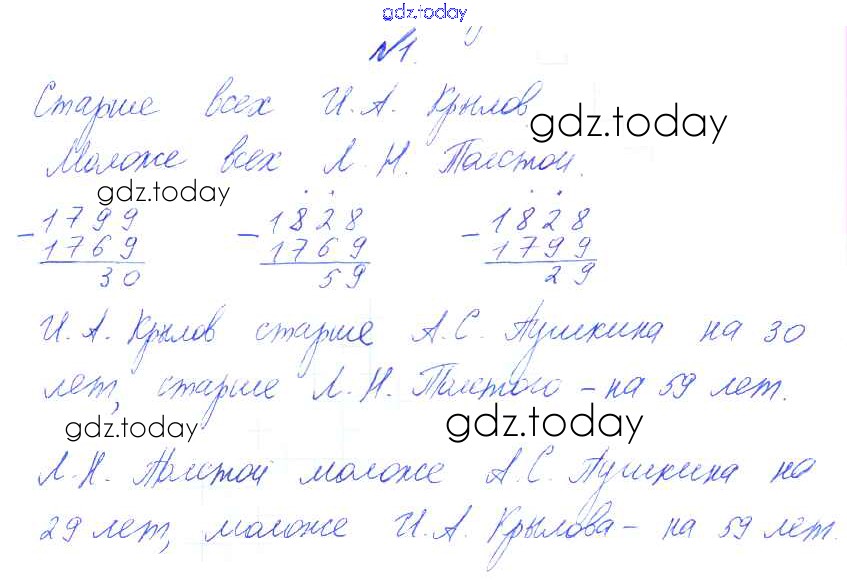 gdz.today
№1.
Старше всех И. А. Крылов.
gdz.today
Моложе всех Л. Н. Толстой.
gdz.today
- 1799 - 1828 - 1828
1769 1769 1799
30 59 29
И. А. Крылов старше А. С. Пушкина на 30
лет, старше Л. Н. Толстого - на 59 лет.
gdz.today gdz.today
Л. Н. Толстой моложе А. С. Пушкина на
29 лет, моложе И. А. Крылова - на 59 лет.